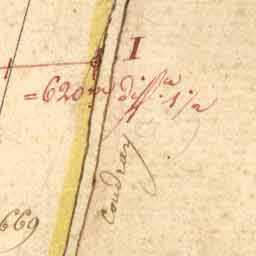 I
=620 m diff.ce 1/2
Coudray
669